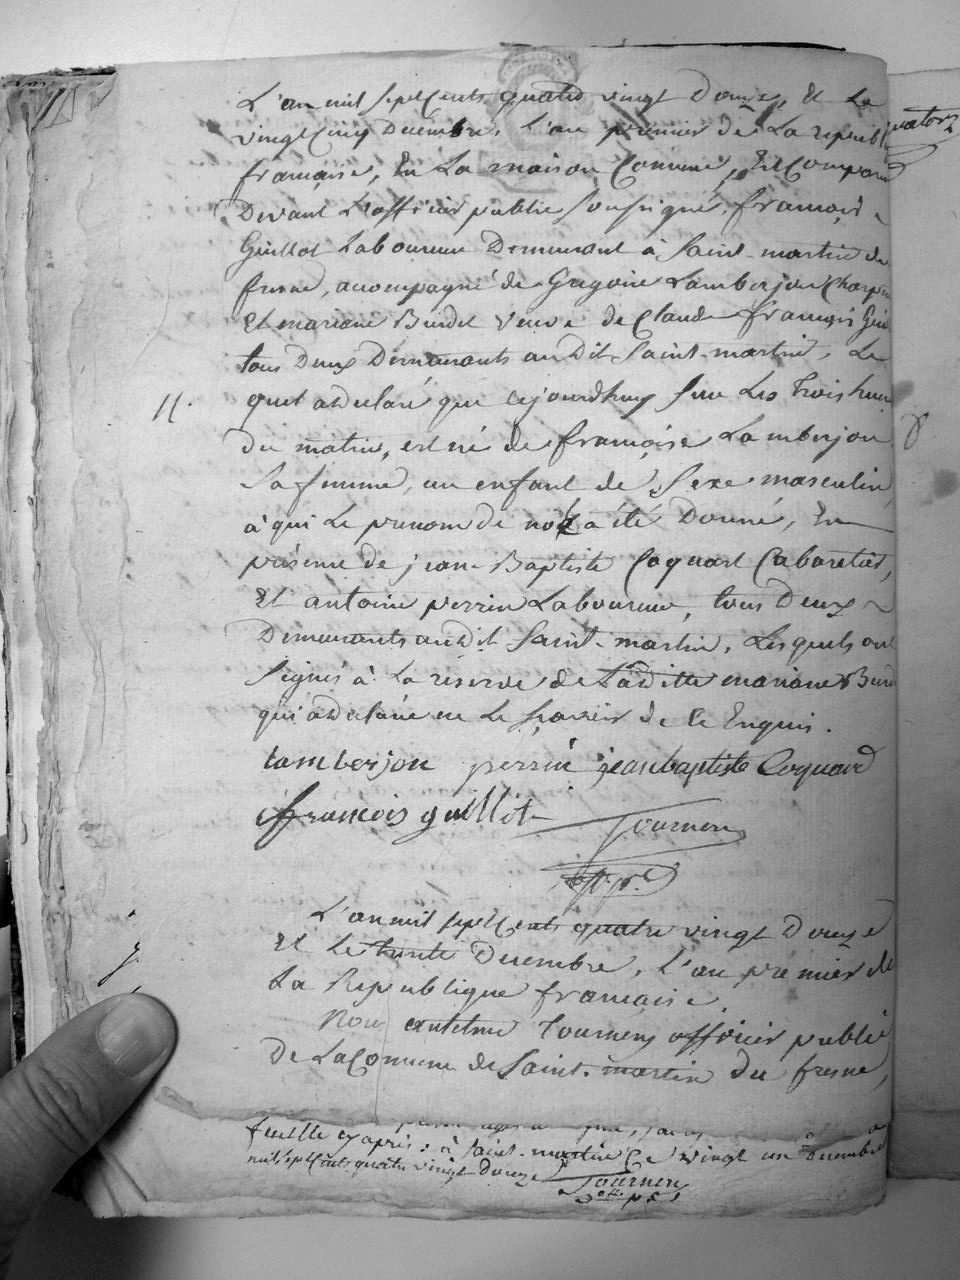 L'an mil sept Cents quatre vingt Douze, Et Le
vingt Cinq Decembre, L'an premier de La republi
française, En La maison Comune, Est Comparu
Devant L'officier public Soussigné, françois
Guillot Laboureur Demeurant à Saint-martin du
fresne, accompagné de Gregoire Lamberjon Charpen
Et mariane Burdet veuve de Claude françois Gui
tous Deux Demeurants audit Saint-martin, Le
quel a declaré que cejourdhuy sur Les trois heures
11.
Du matin, est né de françoise Lamberjon
Sa femme, un enfant de Sexe masculin,
à qui Le prenom de noël a été Donné, En
présence de jean-Baptiste Coquard Cabaretier,
Et antoine perrin Laboureur, tous Deux
Demeurants audit Saint-martin, Lesquels ont
Signés à La réserve de Laditte mariane Burd
qui a declaré ne Le sçavoir de Ce Enquis.
Lamberjon perrin jeanbaptiste Coquard
françois guillot Tournery
off. p.
L'an mil sept Cents quatre vingt Douze
Et Le trente Decembre, L'an premier de
La Republique française,
Nous antelme Tournery officier public
De La Comune de Saint-martin du fresne,
feuille cy apris: à Saint-martin Ce vingt un Decembre
mil sept Cents quatre vingt Douze Tournery
off. p.